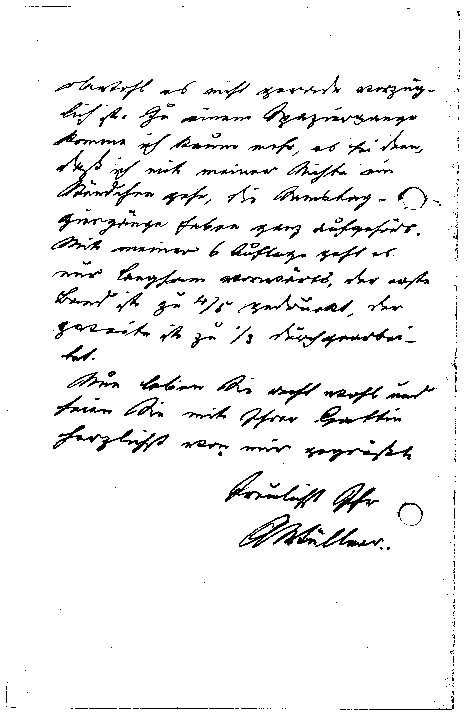 obwohl es nicht gerade vorzüg-
lich ist. Zu einem Spaziergange
komme ich kaum mehr, es sei denn,
daß ich mit meiner Nichte ein
Stündchen gehe, die Samstag-
giergänge haben ganz aufgehört.
Mit meiner 6 Auflage geht es
nur langsam vorwärts, der erste
Band ist zu 4/5 gedruckt, der
zweite ist zu 1/3 durchgearbei-
tet.
Nun leben Sie recht wohl und
seien Sie mit Ihrer Gattin
herzlichst von mir gegrüßt
Treulichst Ihr
AWüllner.